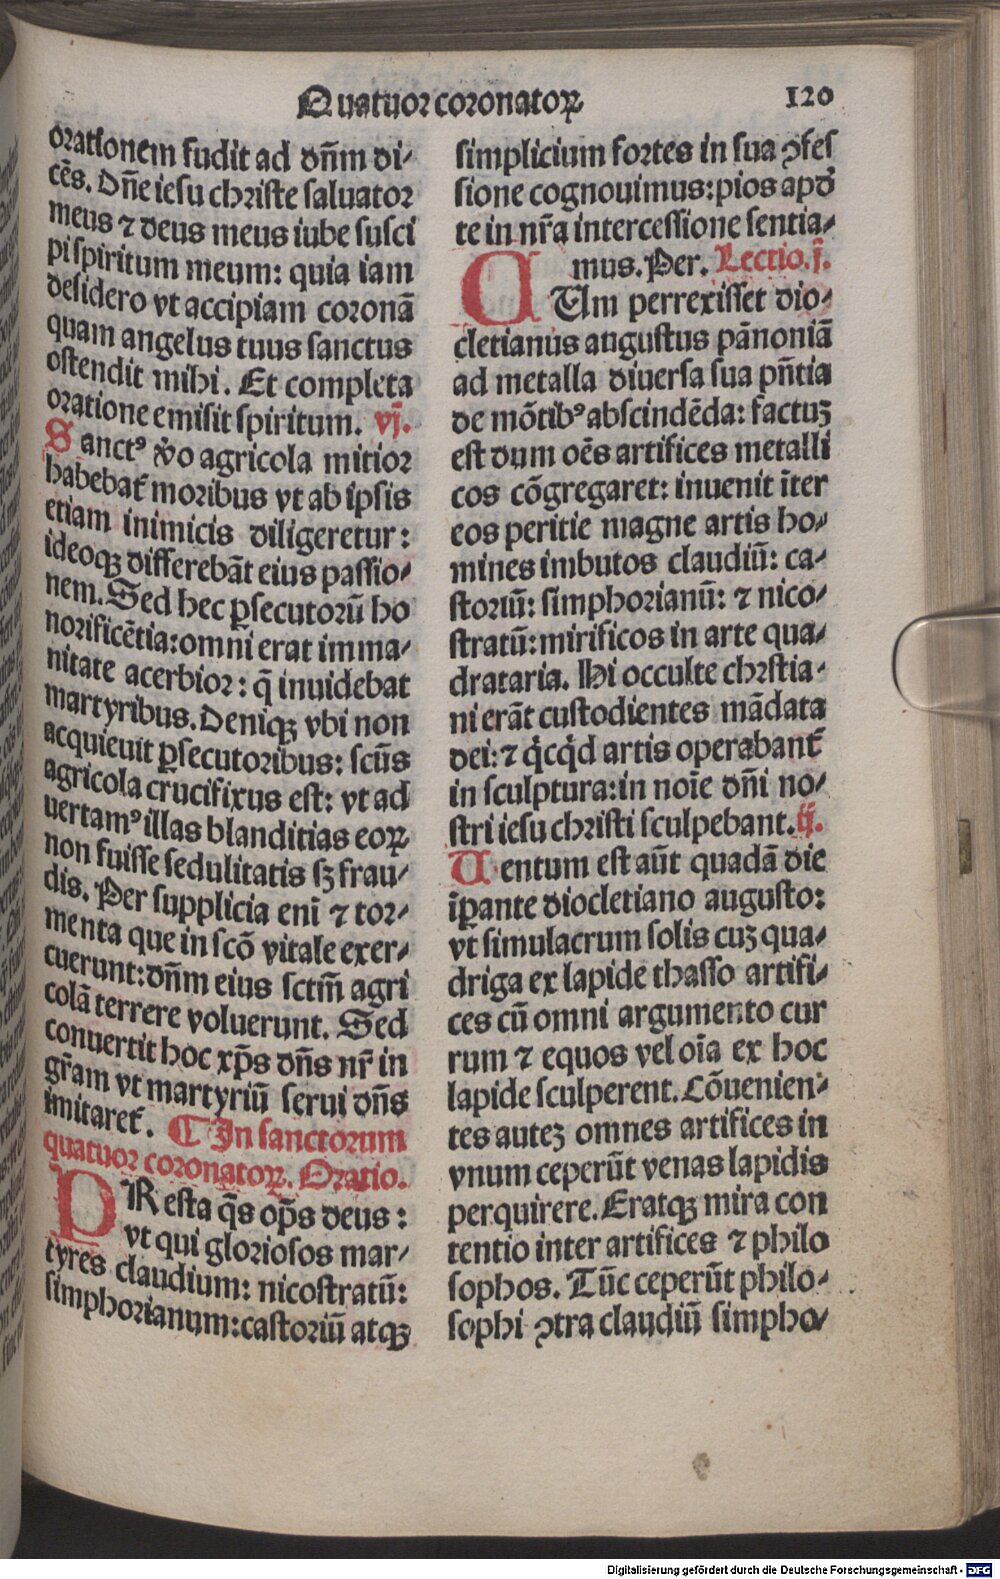 Quatuor coronatoꝝ 120
orationem fudit ad dn̄m di⸗
cēs. Dn̄e iesu christe saluator
meus ⁊ deus meus iube susci
pi spiritum meum: quia iam
desidero vt accipiam coronā
quam angelus tuus sanctus
ostendit mihi. Et completa
oratione emisit spiritum. vj.
Sanctꝰ v̄o agricola mitior
habebat᷑ moribus vt ab ipsis
etiam inimicis diligeretur:
ideoqꝫ differebāt eius passio⸗
nem. Sed hec ꝑsecutorū ho
norificētia: omni erat imma⸗
nitate acerbior: q̄ inuidebat
martyribus. Deniqꝫ vbi non
acquieuit ꝑsecutoribus: scūs
agricola crucifixus est: vt ad
uertamꝰ illas blanditias eoꝝ
non fuisse sedulitatis sꝫ frau⸗
dis. Per supplicia enī ⁊ tor⸗
menta que in scō vitale exer⸗
cuerunt: dn̄m eius sctm̄ agri
colā terrere voluerunt. Sed
conuertit hoc xp̄s dn̄s nr̄ in
gr̄am vt martyriū serui dn̄s
imitaret᷑. ¶ In sanctorum
quatuor coronatoꝝ. Oratio.
PResta q̄s op̄s deus:
vt qui gloriosos mar⸗
tyres claudium: nicostratū:
simphorianum: castoriū atqꝫ
simplicium fortes in sua ꝯfes
sione cognouimus: pios apd̄
te in nr̄a intercessione sentia⸗
mus. Per. Lectio. j.
CUm perrexisset dio⸗
cletianus augustus pānoniā
ad metalla diuersa sua pn̄tia
de mōtibꝰ abscindēda: factuꝫ
est dum oēs artifices metalli
cos cōgregaret: inuenit īter
eos peritie magne artis ho⸗
mines imbutos claudiū: ca⸗
storiū: simphorianū: ⁊ nico⸗
stratū: mirificos in arte qua⸗
drataria. Hi occulte chrstia⸗
ni erāt custodientes mādata
dei: ⁊ q̇cq̇d artis operabant᷑
in sculptura: in noīe dn̄i no⸗
stri iesu christi sculpebant. ij.
Uentum est aūt quadā die
īꝑante diocletiano augusto:
vt simulacrum solis cuꝫ qua⸗
driga ex lapide thasso artifi⸗
ces cū omni argumento cur
rum ⁊ equos vel oīa ex hoc
lapide sculperent. Cōuenien⸗
tes auteꝫ omnes artifices in
vnum ceperūt venas lapidis
perquirere. Eratqꝫ mira con
tentio inter artifices ⁊ philo
sophos. Tūc ceperūt philo⸗
sophi ꝯtra claudiū simpho⸗
Digitalisierung gefördert durch die Deutsche Forschungsgemeinschaft - DFG